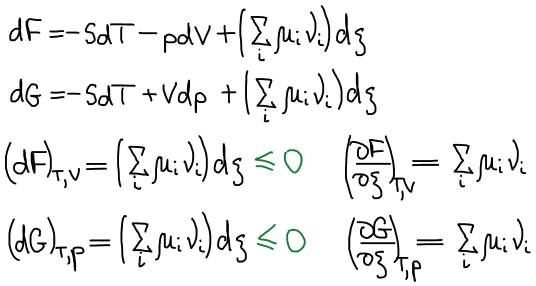 dF = -SdT - pdV + (∑_i μ_i ν_i) dξ
dG = -SdT + Vdp + (∑_i μ_i ν_i) dξ
(dF)_{T,V} = (∑_i μ_i ν_i) dξ ≤ 0 (∂F/∂ξ)_{T,V} = ∑_i μ_i ν_i
(dG)_{T,p} = (∑_i μ_i ν_i) dξ ≤ 0 (∂G/∂ξ)_{T,p} = ∑_i μ_i ν_i